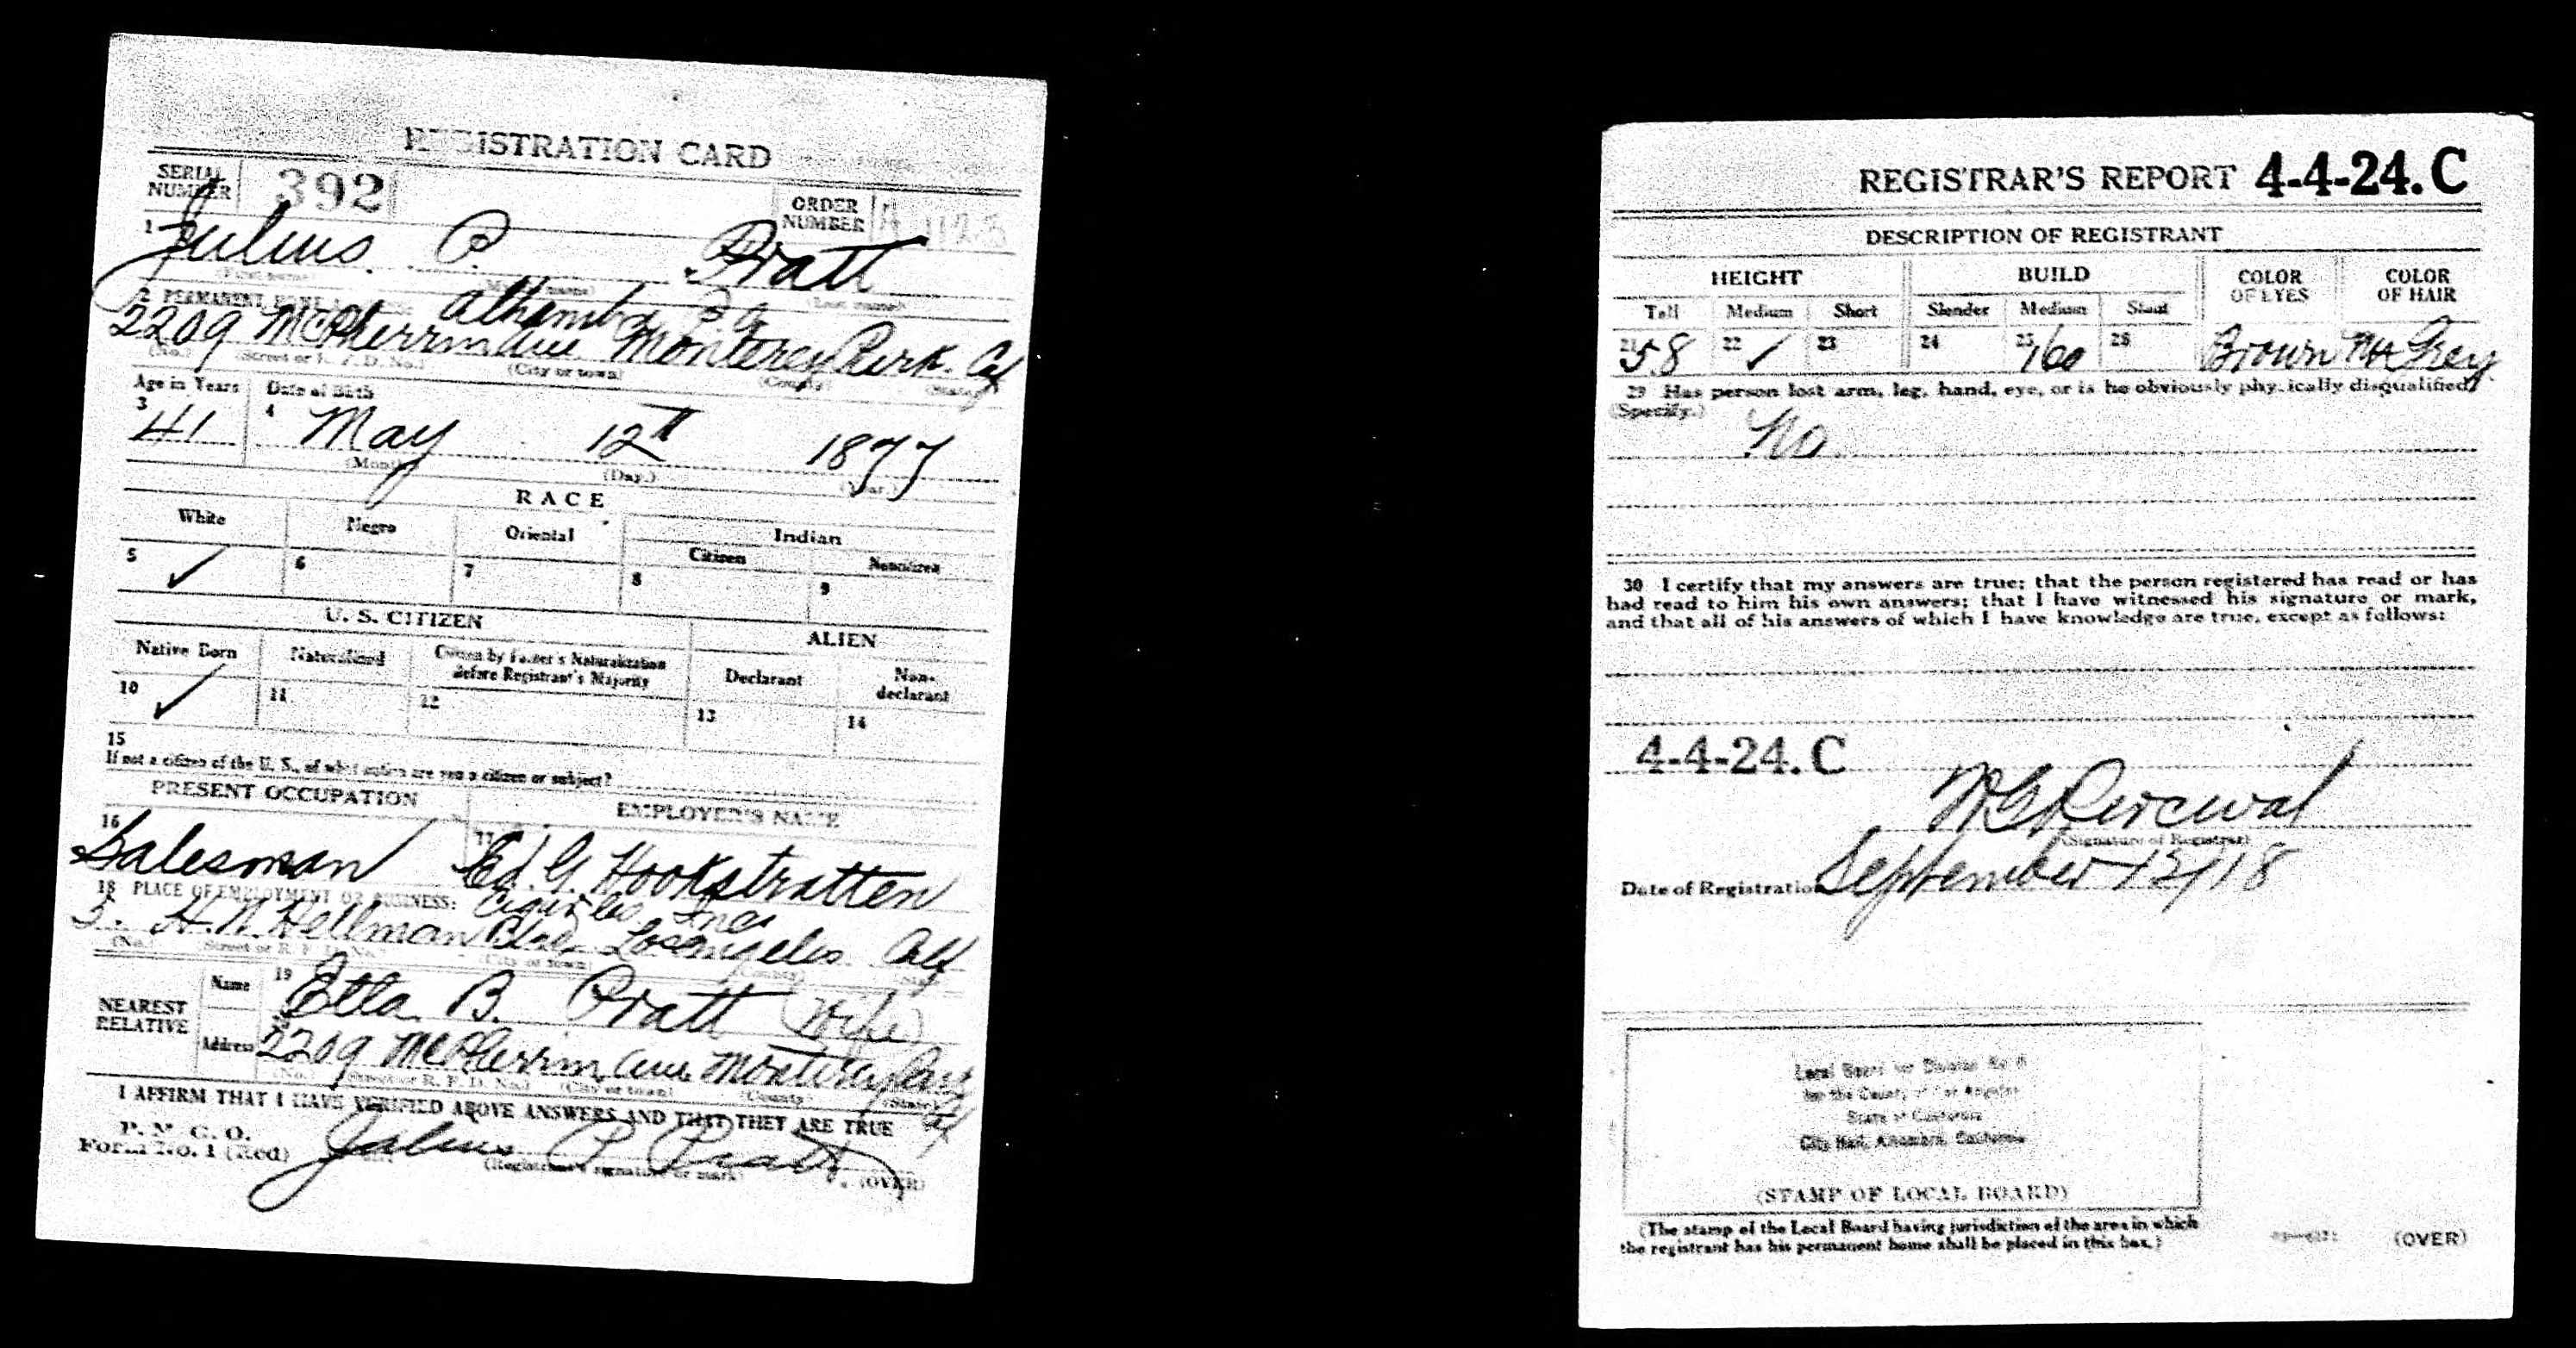 REGISTRATION CARD
SERIAL NUMBER 392 ORDER NUMBER
1 Julius P. Pratt
(First name) (Middle name) (Last name)
2 PERMANENT HOME ADDRESS: Alhambra
2209 Ave Monterey Park. Cal
(No.) (Street or R. F. D. No.) (City or town) (County) (State)
Age in Years Date of Birth
3 41 4 May 12th 1877
(Month) (Day.) (Year.)
RACE
White Negro Oriental Indian
Citizen Noncitizen
5 ✓ 6 7 8 9
U. S. CITIZEN ALIEN
Native Born Naturalized Citizen by Father's Naturalization Before Registrant's Majority Declarant Non-declarant
10 ✓ 11 12 13 14
15
If not a citizen of the U. S., of what nation are you a citizen or subject?
PRESENT OCCUPATION EMPLOYER'S NAME
16 Salesman 17 Ed. G. Hookstratten
Cigar Co. Inc
18 PLACE OF EMPLOYMENT OR BUSINESS:
H. W. Hellman Bldg Los Angeles Calif
(No.) (Street or R. F. D. No.) (City or town) (County) (State)
NEAREST RELATIVE
Name 19 Etta B. Pratt (Wife)
Address 20 2209 Ave Monterey Park
Cal
(No.) (Street or R. F. D. No.) (City or town) (County) (State)
I AFFIRM THAT I HAVE VERIFIED ABOVE ANSWERS AND THAT THEY ARE TRUE
P. M. G. O.
Form No. 1 (Red) Julius P. Pratt
(Registrant's signature or mark) (OVER)
REGISTRAR'S REPORT 4-4-24. C
DESCRIPTION OF REGISTRANT
HEIGHT BUILD COLOR OF EYES COLOR OF HAIR
Tall Medium Short Slender Medium Stout
21 58 22 ✓ 23 24 25 160 26 Brown Grey
29 Has person lost arm, leg, hand, eye, or is he obviously physically disqualified?
(Specify.)
No
30 I certify that my answers are true; that the person registered has read or has
had read to him his own answers; that I have witnessed his signature or mark,
and that all of his answers of which I have knowledge are true, except as follows:
4-4-24. C
Percival
(Signature of Registrar)
Date of Registration September 12/18
Local Board for Division No.
for the County of Los Angeles
State of California
City Hall, Alhambra, California
(STAMP OF LOCAL BOARD)
(The stamp of the Local Board having jurisdiction of the area in which
the registrant has his permanent home shall be placed in this box.)
(OVER)